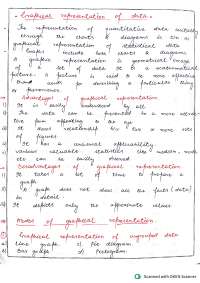 - Graphical representation of data -
The representation of quantitative data suitably
through the charts & diagrams is the as
graphical representation of statistical data
- Graphs include both charts & diagrams
A graphic representation is geometrical image
of a set of data. It is a mathematical
picture. A picture is said to be more effective
than words for describing a particular thing
or phenomenon.
Advantages of graphical representation
It is easily understood by all.
The data can be presented in a more attrac-
tive form appealing to the eye
It shows relationship b/w two or more sets
of figures
It has a universal applicability.
various valuable statistics like median, mode
etc can be easily
Disadvantages of graphical representation
It takes a lot of time to prepare a
graph.
A graph does not show all the facts (data)
in detail.
It depicts only the approximate values.
Modes of graphical representation
Graphical representation of ungrouped data
a) Line graph c) Pie diagram
b) Bar graph d) Pictogram
Scanned with OKEN Scanner